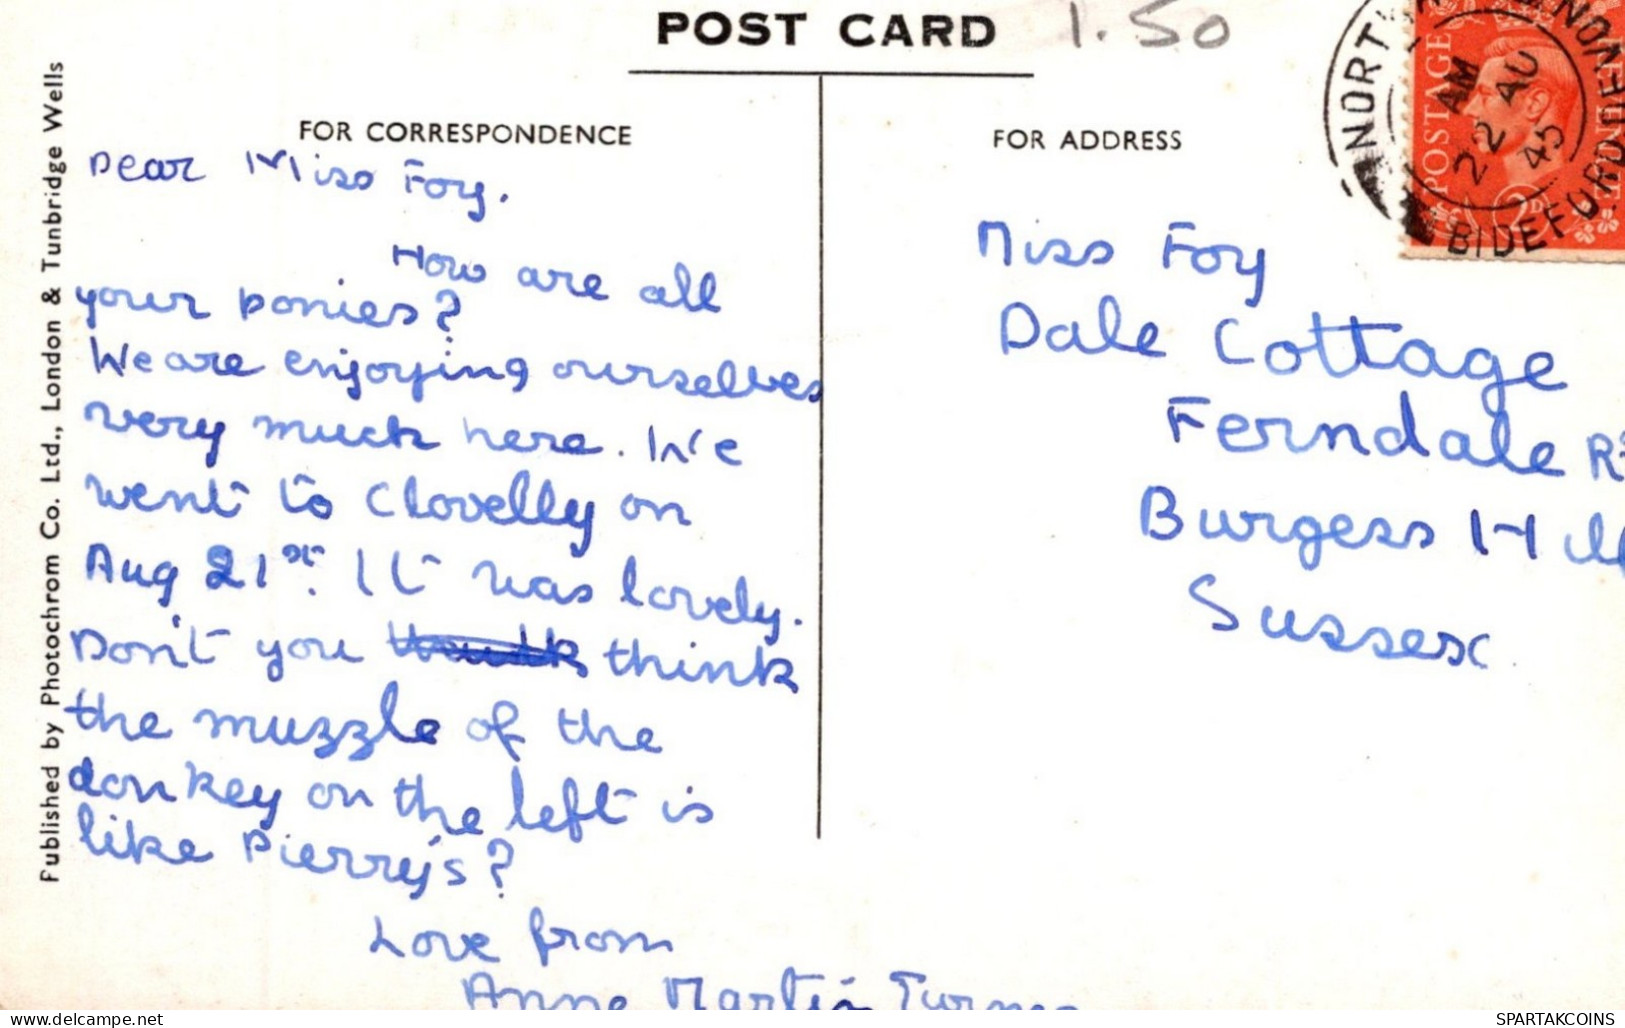 POST CARD 1.50
FOR CORRESPONDENCE
Dear Miss Foy.
How are all
your ponies?
We are enjoying ourselves
very much here. We
went to Clovelly on
Aug 21st. It was lovely.
Don't you think
the muzzle of the
donkey on the left is
like Pierry's?
Love from
Anne Martin Turner
Published by Photochrom Co. Ltd., London & Tunbridge Wells
FOR ADDRESS
Miss Foy
Dale Cottage
Ferndale Rd
Burgess Hill
Sussex
POSTAGE
2D
AM
22 AU
45
BIDEFORD
SPARTAKCOINS